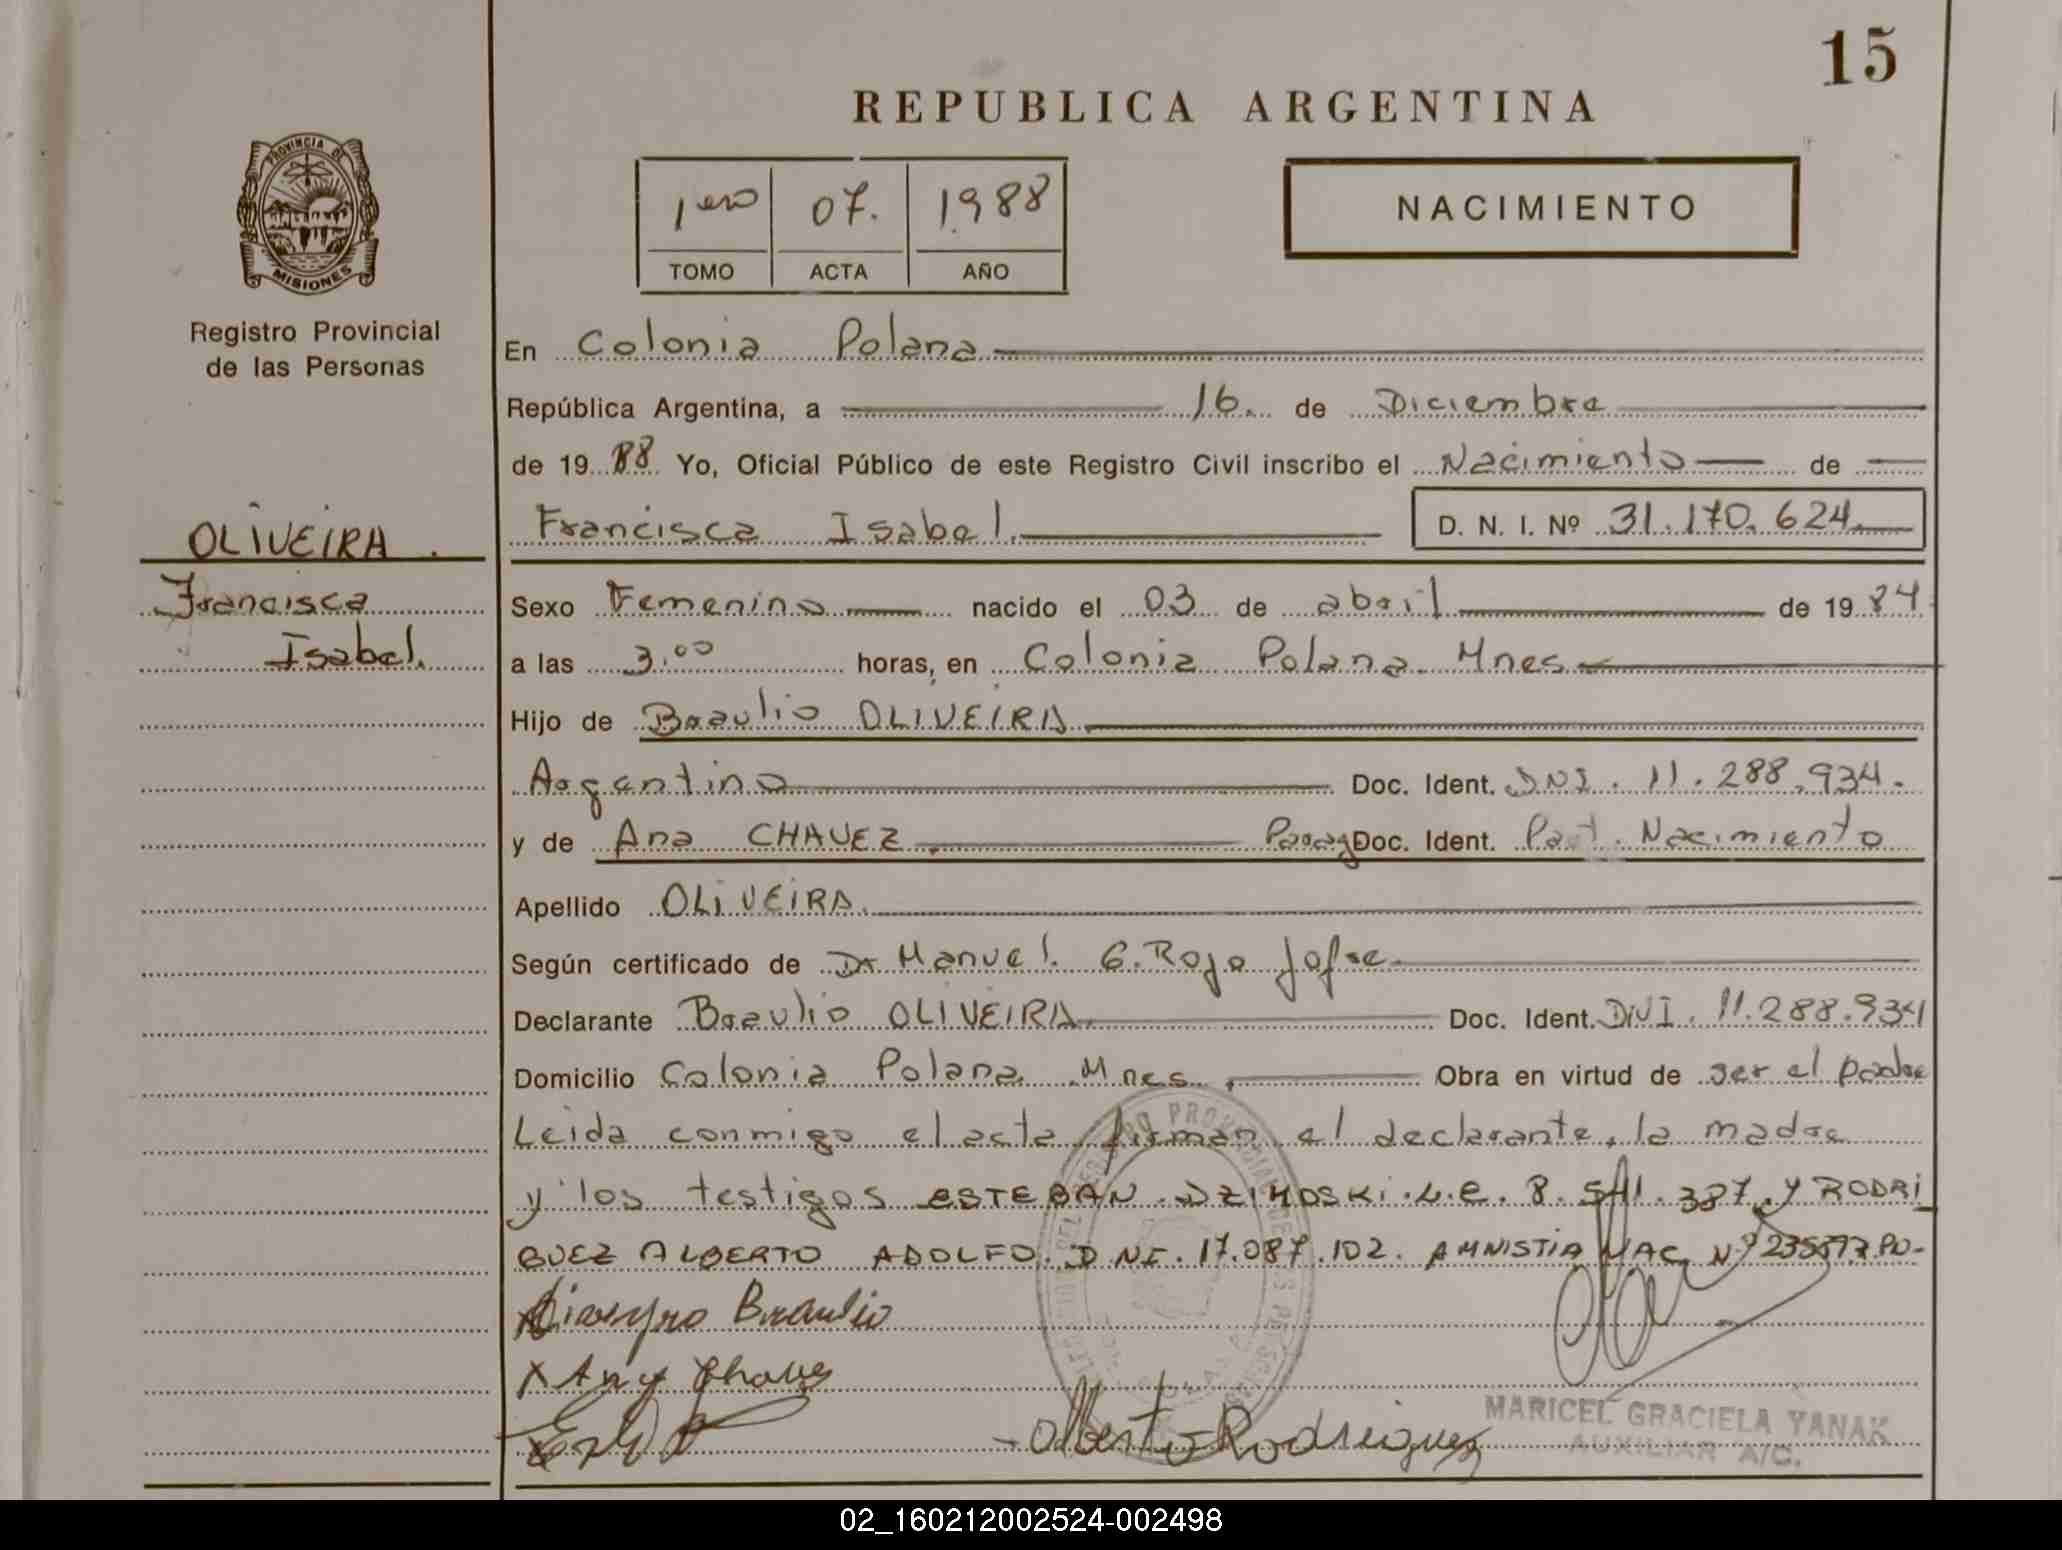 15
REPUBLICA ARGENTINA
PROVINCIA DE
MISIONES
Registro Provincial
de las Personas
1ero 07. 1.988
TOMO ACTA AÑO
NACIMIENTO
En Colonia Polana
República Argentina, a 16. de Diciembre
de 19 88 Yo, Oficial Público de este Registro Civil inscribo el Nacimiento de
Francisca Isabel. D. N. I. Nº 31.170.624
OLIVEIRA.
Francisca
Isabel.
Sexo Femenino nacido el 03 de abril de 19 84
a las 3.00 horas, en Colonia Polana Mnes
Hijo de Braulio OLIVEIRA
Argentino Doc. Ident. DNI. 11.288.934.
y de Ana CHAVEZ Parag Doc. Ident. Part. Nacimiento
Apellido OLIVEIRA.
Según certificado de Dr Manuel G. Rojo Jofre
Declarante Braulio OLIVEIRA Doc. Ident. DNI. 11.288.934
Domicilio Colonia Polana Mnes. Obra en virtud de ser el padre
Leida conmigo el acta, firman el declarante, la madre
y los testigos ESTEBAN L.E. 8. 541. 387. Y RODRI
GUEZ ALBERTO ADOLFO. DNI. 17.087.102. AMNISTIA NAC Nº PO-
Braulio
X Any Chaves
Alberto Rodriguez
MARICEL GRACIELA YANAK
AUXILIAR A/C.
02_160212002524-002498